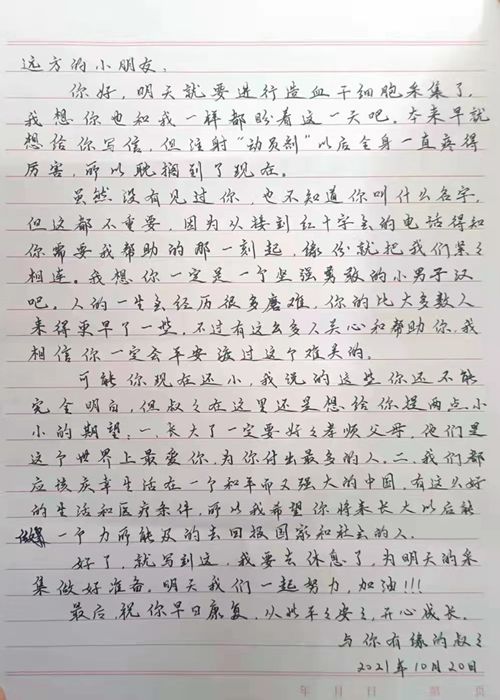 远方的小朋友:
你好,明天就要进行造血干细胞采集了,
我想你也和我一样都盼着这一天吧。本来早就
想给你写信,但注射“动员剂”以后全身一直疼得
厉害,所以耽搁到了现在。
虽然没有见过你,也不知道你叫什么名字,
但这都不重要,因为从接到红十字会的电话得知
你需要我帮助的那一刻起,缘份就把我们紧々
相连。我想你一定是一个坚强勇敢的小男子汉
吧。人的一生会经历很多磨难,你的比大多数人
来得更早了一些,不过有这么多人关心和帮助你,我
相信你一定会平安渡过这个难关的。
可能你现在还小,我说的这些你还不能
完全明白,但叔々在这里还是想给你提两点小
小的期望:一、长大了一定要好々孝顺父母,他们是
这个世界上最爱你、为你付出最多的人。二、我们都
应该庆幸生活在一个和平而又强大的中国,有这么好
的生活和医疗条件,所以我希望你将来长大以后能
做一个力所能及的去回报国家和社会的人。
好了,就写到这,我要去休息了,为明天的采
集做好准备。明天我们一起努力,加油!!!
最后,祝你早日康复,从此平々安々,开心成长。
与你有缘的叔々
2021年10月20日
年 月 日 第 页